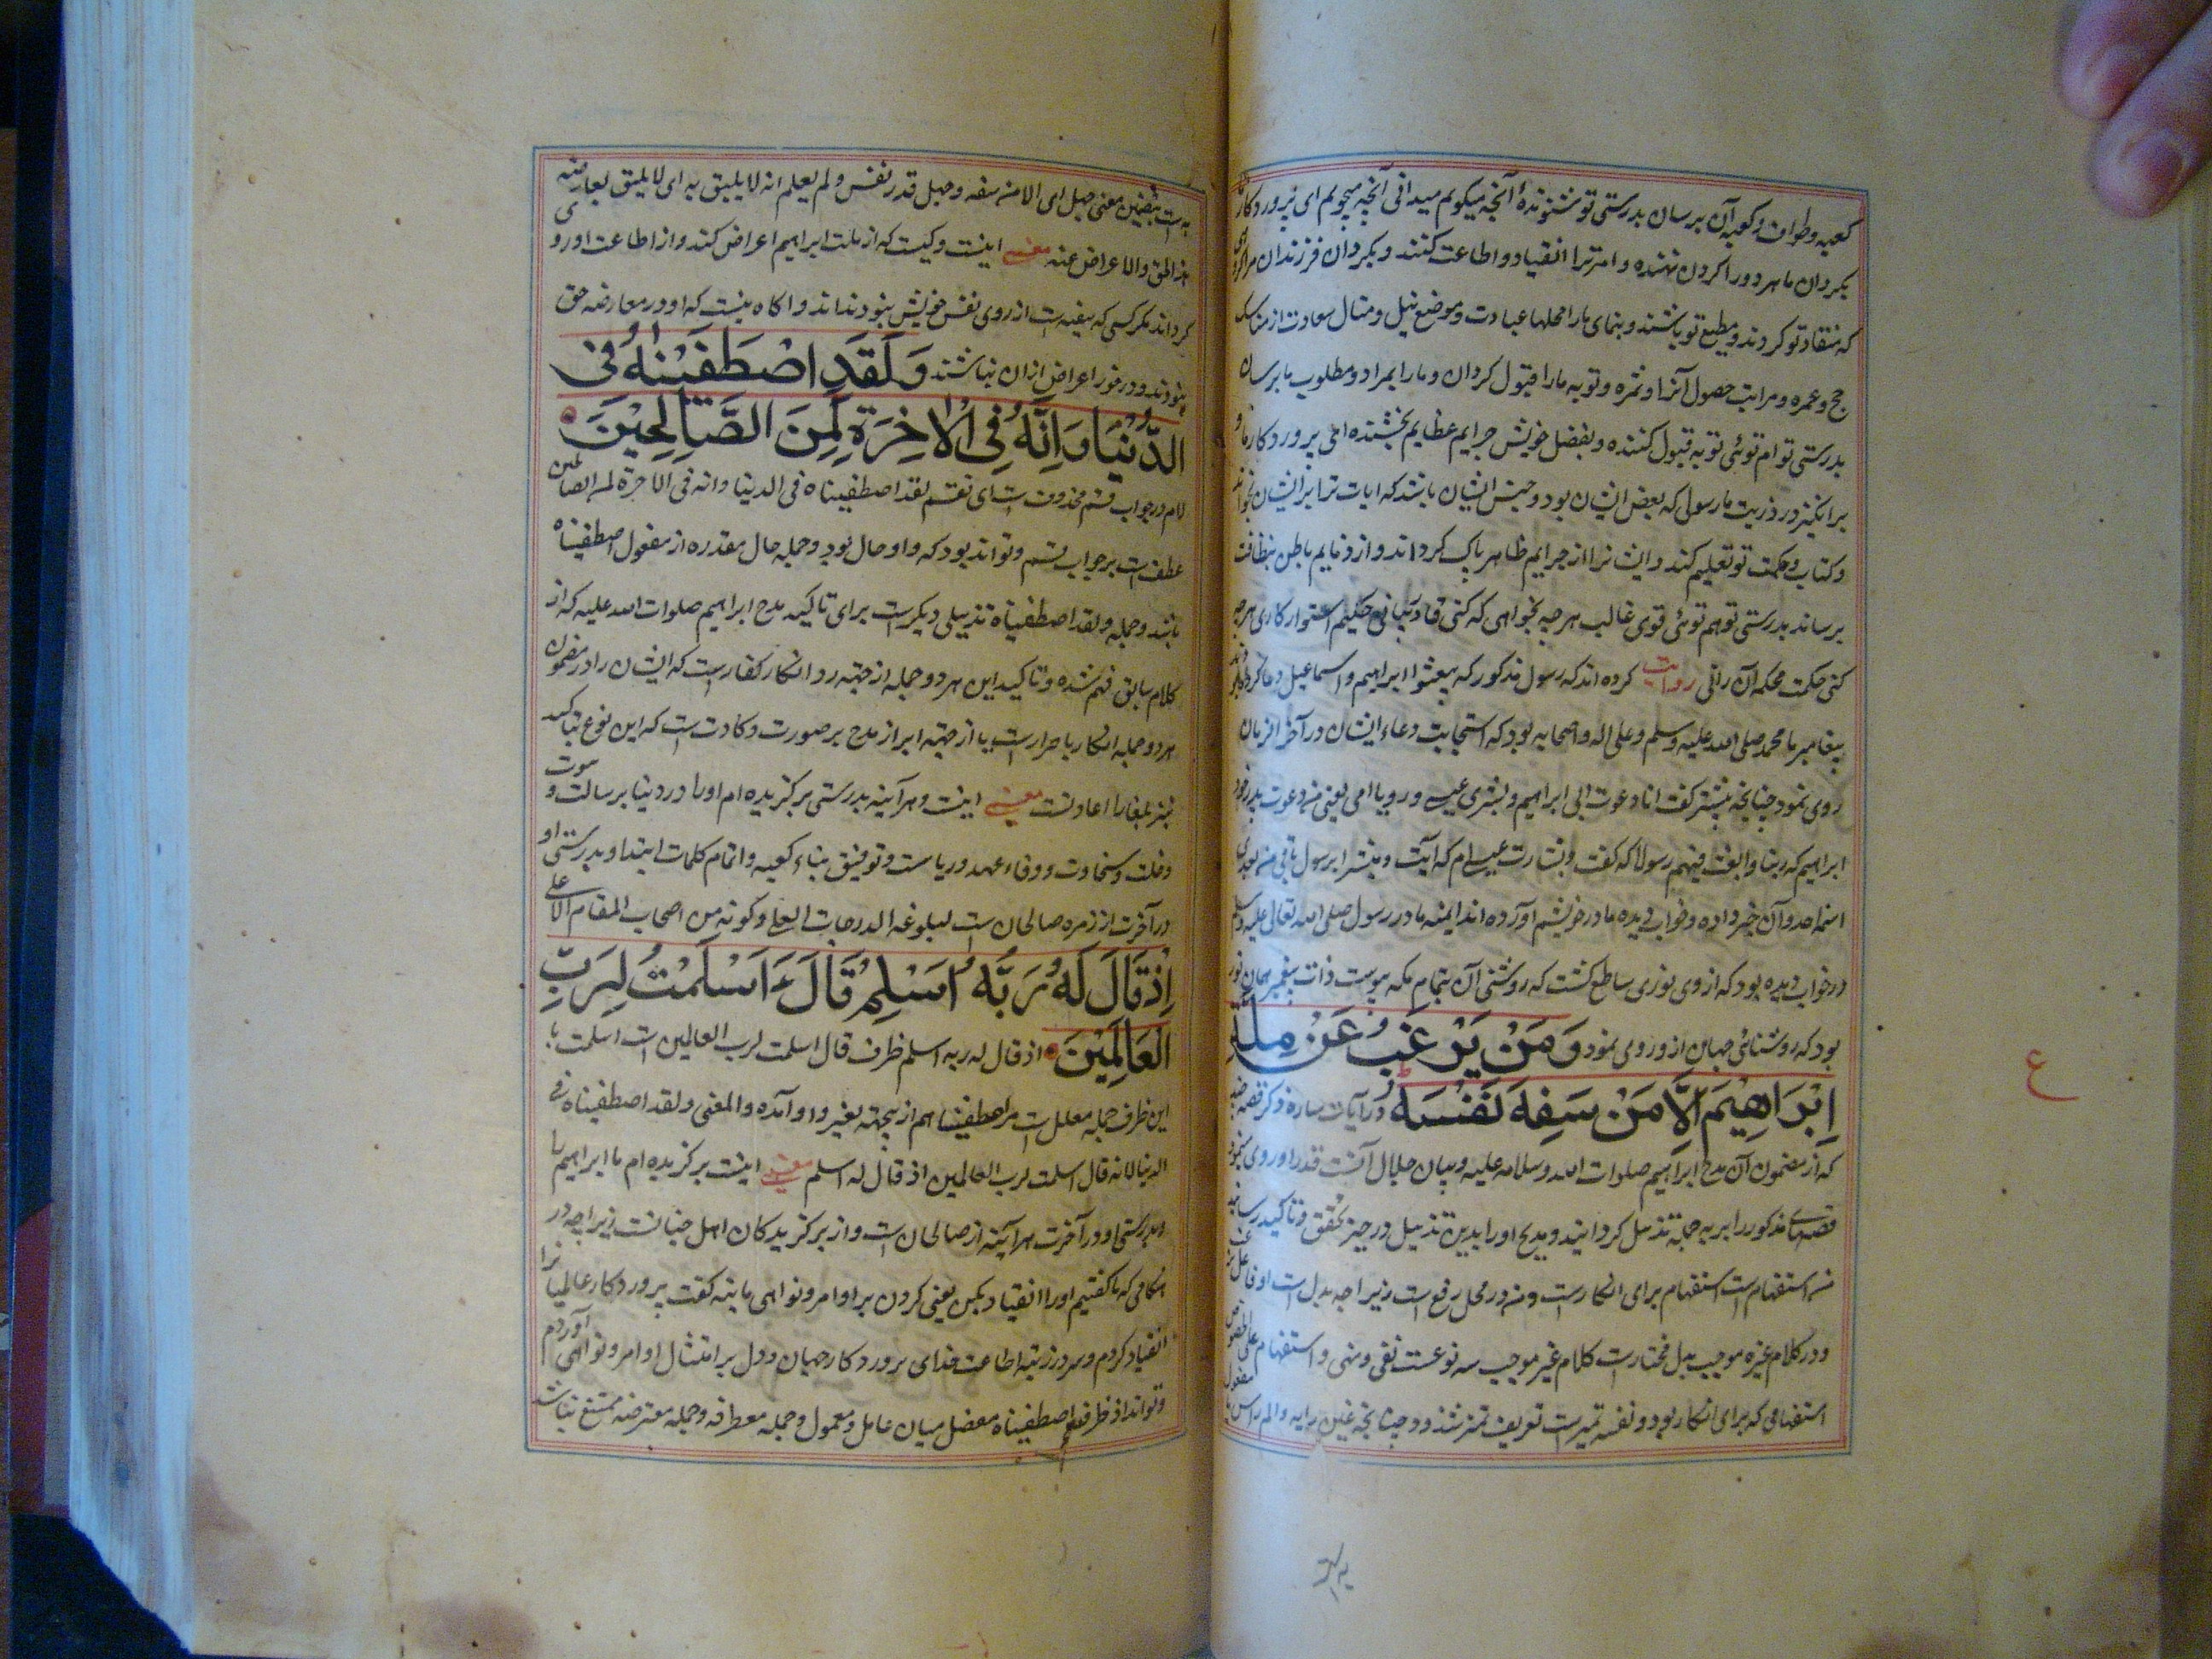 کعبه وطواف وکعبه آن برسان بدرستی تو شنوندهٔ آنچه میکویم میدانی آنچه میجویم ای پروردکار
بکردان ما هر دو را کردن نهنده وامر ترا انقیاد واطاعت کنند وبکردان فرزندان مرا
که منقاد تو کردند ومطیع تو باشند وبنمای مارا محلها عبادت وموضع نیل ومنال سعادت از مناسک
حج وعمره ومراتب حصول آنرا وثمره وتوبه مارا قبول کردان ومارا بمراد ومطلوب ما برسان
بدرستی تو ام توئی توبه قبول کننده وبفضل خویش جرایم عظایم بخشنده ای پروردکار ما و
برانکیز در ذریت ما رسولی که بعض ایشان بود وجنس ایشان باشد که ایات ترا بر ایشان بخواند
وکتاب وحکمت تو تعلیم کند وایشانرا از جرایم ظاهر پاک کرداند واز ذمایم باطن بنظافت
برساند بدرستی تو هم توئی قوی غالب هر چه بخواهی که کنی قادر بیانی حکیم استوار کاری هر چه
کنی حکمت محکمه آن رانی روایت کرده اند که رسول مذکور که مبعثوا ابراهیم واسماعیل دعا کرده
پیغامبر ما محمد صلی الله علیه وسلم وعلی اله واصحابه بود که استجابت دعاء ایشان در آخر الزمان
روی نمود چنانچه پیشتر کفت انا دعوت ابی ابراهیم وبشری عیسی ورویا امی یعنی من دعوت پدر خود
ابراهیم که ربنا وابعث فیهم رسولا که کفت وبشارت عیسی ام که آیت ومبشرا برسول یاتی من بعدی
اسمه احمد وآن خبر داده وخواب دیده مادر خویشم آورده اند ایمنه مادر رسول صلی الله تعالی علیه وسلم
در خواب دیده بود که از وی نوری ساطع کشت که روشنی آن بتمام مکه پیوست ذات پیغمبر همان نور
بود که روشنائی جهان از و روی نمود وَمَنْ يَرْغَبُ عَنْ مِلَّةِ
اِبْرَاهِيْمَ اِلَّا مَنْ سَفِهَ نَفْسَهُ در آیات ساره ذکر قصه
که از مضمون آن مدح ابراهیم صلوات الله وسلامه علیه وبیان جلال آنست قدر او روی نمود
قصهاء مذکور را بر به جمله تذییل کردانید ومدیح اورا بدین تذییل در حیز تحقق وتاکید رسانید
من استفهام است استفهام برای انکارست ومن در محل رفع است زیرا چه بدل است از فاعل
ودر کلام غیره موجب بدل مختارست کلام غیر موجب سه نوعست نفی ونهی واستفهام علی الخصوص
استفهامی که برای انکار بود ونفسه تمیزست تعریف تمیز شذوذ چنانچه غبن رایه والم راس
به است بتضمین معنی جهل ای الا من سفه وجهل قدر نفس ولم یعلم انه لا یلیق به ای لا یلیق بعارضه
هذا الحق والاعراض عنه معنی اینست وکیست که از ملت ابراهیم اعراض کند واز اطاعت او رو
کرداند مکر کسی که سفیه است از روی نفس خویش بنود نداند واکاه نیست که او در معارضه حق
بنودند ودر خور اعراض ازان نباشند وَلَقَدِ اصْطَفَيْنٰهُ فِي
الدُّنْيَا وَاِنَّهُ فِي الْاٰخِرَةِ لَمِنَ الصَّالِحِيْنَ
لام در جواب قسم محذوف است ای نقسم لقد اصطفیناه فی الدنیا وانه فی الاخرة لمن الصالحین
عطف است بر جواب قسم وتواند بود که واو حال بود وجمله حال مقدره از مفعول اصطفیناه
باشد وجمله ولقد اصطفیناه تذییلی دیکرست برای تاکید مدح ابراهیم صلوات الله علیه که از
کلام سابق فهم شده وتاکید این هر دو جمله از جهته رد انکار کفارست که ایشان را در مضمون
هر دو جمله انکار یا صرارست یا از جهته ابراز مدح بر صورت وکادت است که این نوع بتاکید
نیز بلغا را عادتست معنی اینست وهرآینه بدرستی برکزیده ام اورا در دنیا برسالت و
وخلت وسخاوت ووفاء عهد وریاست وتوفیق بناء کعبه واتمام کلمات ابتدا وبدرستی او
در آخرت از زمره صالحان است لبلوغه الدرجات العلی وکونه من اصحاب المقام الاعلی
اِذْ قَالَ لَهُ رَبُّهُ اَسْلِمْ قَالَ اَسْلَمْتُ لِرَبِّ
الْعَالَمِيْنَ اذ قال له ربه اسلم ظرف قال اسلمت لرب العالمین است اسلمت با
این ظرف جمله معلل است مر اصطفینا هم از بجهته بغیر واو آمده والمعنی ولقد اصطفیناه فی
الدنیا لانه قال اسلمت لرب العالمین اذ قال له اسلم معنی اینست برکزیده ام ما ابراهیم را
وبدرستی او در آخرت هرآینه از صالحان است واز برکزیدکان اهل جنانست زیرا چه در
هنکامی که ما کفتیم اورا انقیاد بکن یعنی کردن بر اوامر ونواهی ما بنه کفت پروردکار عالمیانرا
انقیاد کردم وسر در رتبه اطاعت خدای پروردکار جهان ودل بر امتثال اوامر ونواهی آوردم
وتواند اذ ظرف اصطفیناه مفضل میان عامل ومعمول وجمله معطوفه وجمله معترضه ممتنع نباشد
ع